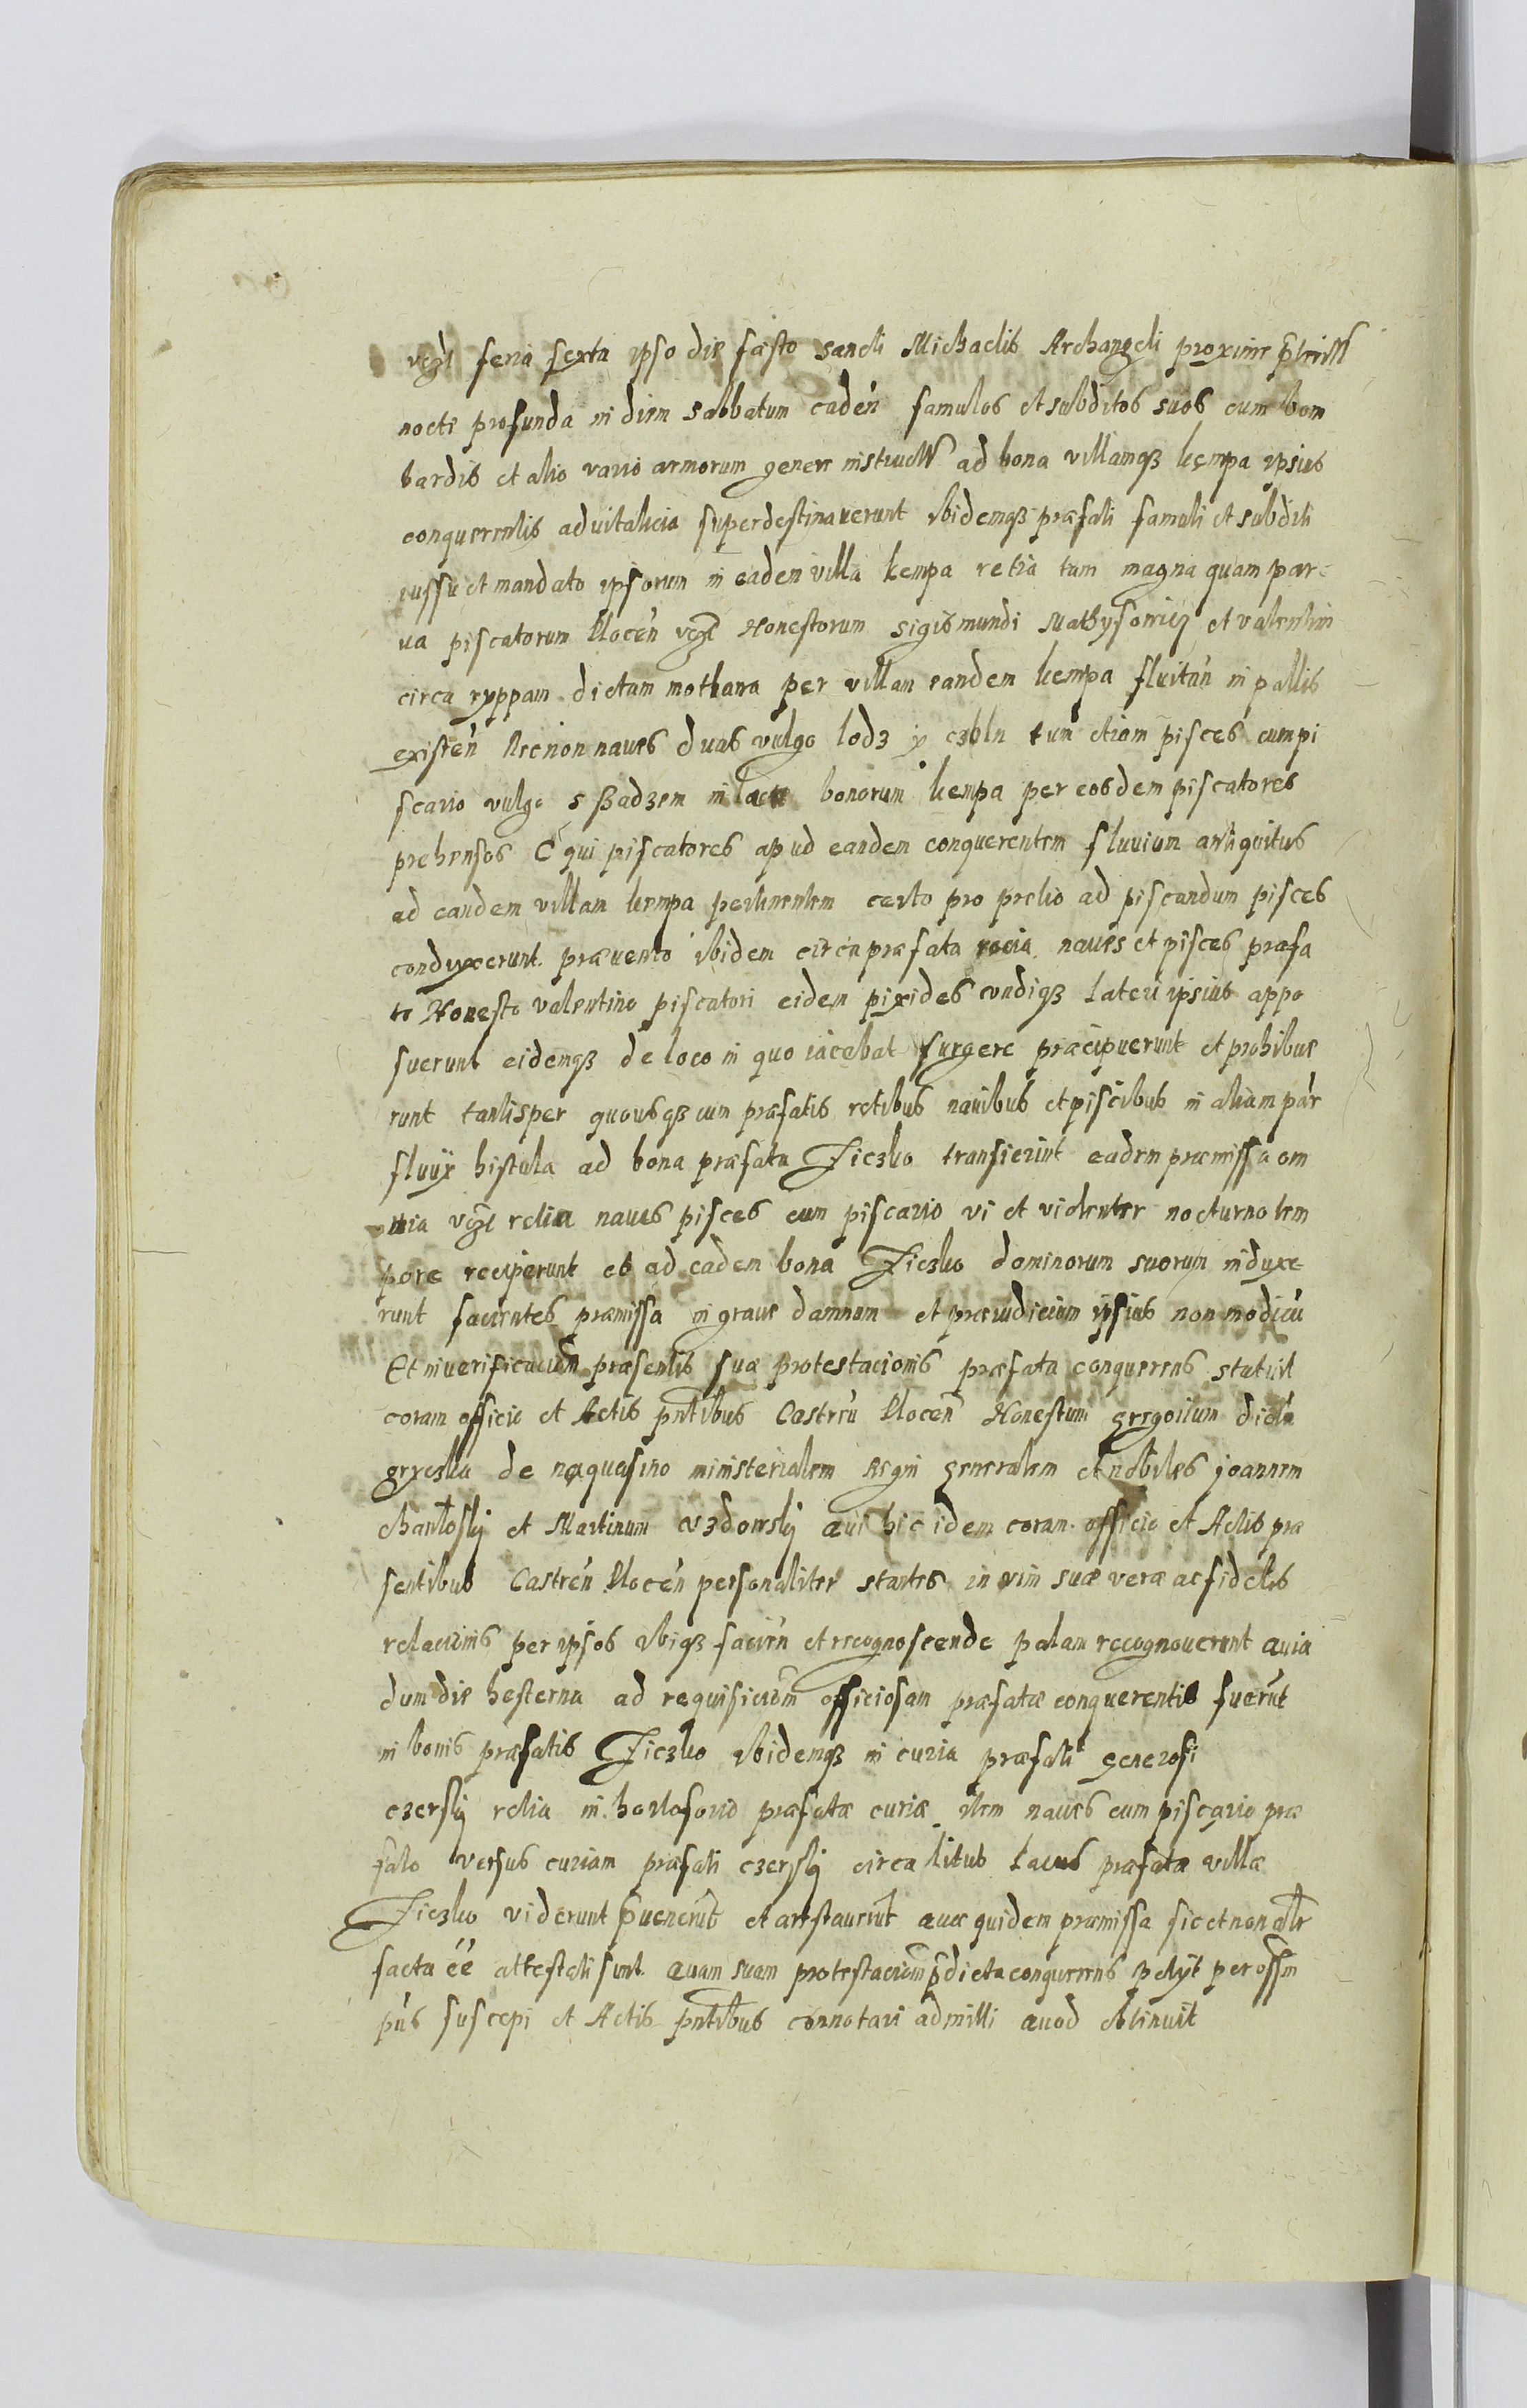 vczl feria sexta ipso die fæsto sancti Michaelis Archangeli proxime
nocte profunda in diem sabbatum caden̄ famulos et subditos suos cum bom
bardis et alio vario armorum genere ad bona villamqз kempa ipsius
conquerentis aduitalicia superdestinauerunt ibidemqз præfati famuli et subditi
iussu et mandato ipsorum in eadem villa kempa retia tam magna quam par-
ua piscatorum Plocen̄ vczl Honestorum Sigismundi et Valentini
circa ryppam dictam per villam eandem kempa fluitan̄ in pallis
existen̄ Necnon naues duas vulgo lodз y tum etiam pisces cum pi
scario vulgo sßadзem in lacu bonorum kempa per eosdem piscatores
prehensos qui piscatores apud eandem conquerentem fluuium antiquitus
ad eandem villam kempa pertinentem certo pro pretio ad piscandum pisces
conduxerunt præuento ibidem circa præfata recia naues et pisces præfa
to Honesto valentino piscatori eidem pixides undiqз lateri ipsius appo
suerunt eidemqз de loco in quo iacebat surgere præcipuerunt et prohibue
runt tantisper quousqз cum præfatis retibus nauibus et piscibus in aliam par̄
fluuÿ histula ad bona præfata Ticзko transierint eadem præmissa om
nia vczl retia naues pisces cum piscario vi et violenter nocturno tem
pore reciperunt et ad eadem bona Ticзko dominorum suorum induxe-
runt facientes præmissa in graue damnum et præiudicium ipsius non modicū
Et in uerificaciōm præsentis suæ protestacionis præfata conquerens statuit
coram officio et Actis pn̄tibus Castren̄ Plocen̄ Honestum gregorium dictū
de ministerialem Regni generalem et nobiles joannem
et Martinum qui hic idem coram officio et Actis præ
sentibus Castren̄ Plocen̄ personaliter stantes in vim suæ veræ ac fidelis
relacionis per ipsos ibiqз facien̄ et recognoscende palam recognouerunt quia
dum die hesterna ad requisiciōm officiosam præfatæ conquerentis fuerūt
in bonis præfatis Ticзko ibidemqз in curia præfati generosi
cзerskÿ retia in præfatæ curiæ item naues cum piscario præ
fato versus curiam præfati cзerskÿ circa litus lacus præfatæ villæ
Ticзko viderunt p̄uenerūt et arestauerūt quæ quidem præmissa sic et non alr̄
facta eē attestati sunt quam suam protestaciōm p̄dicta conquerens petyt per offm
pūs suscepi et Actis pn̄tibus connotari admitti quod obtinuit